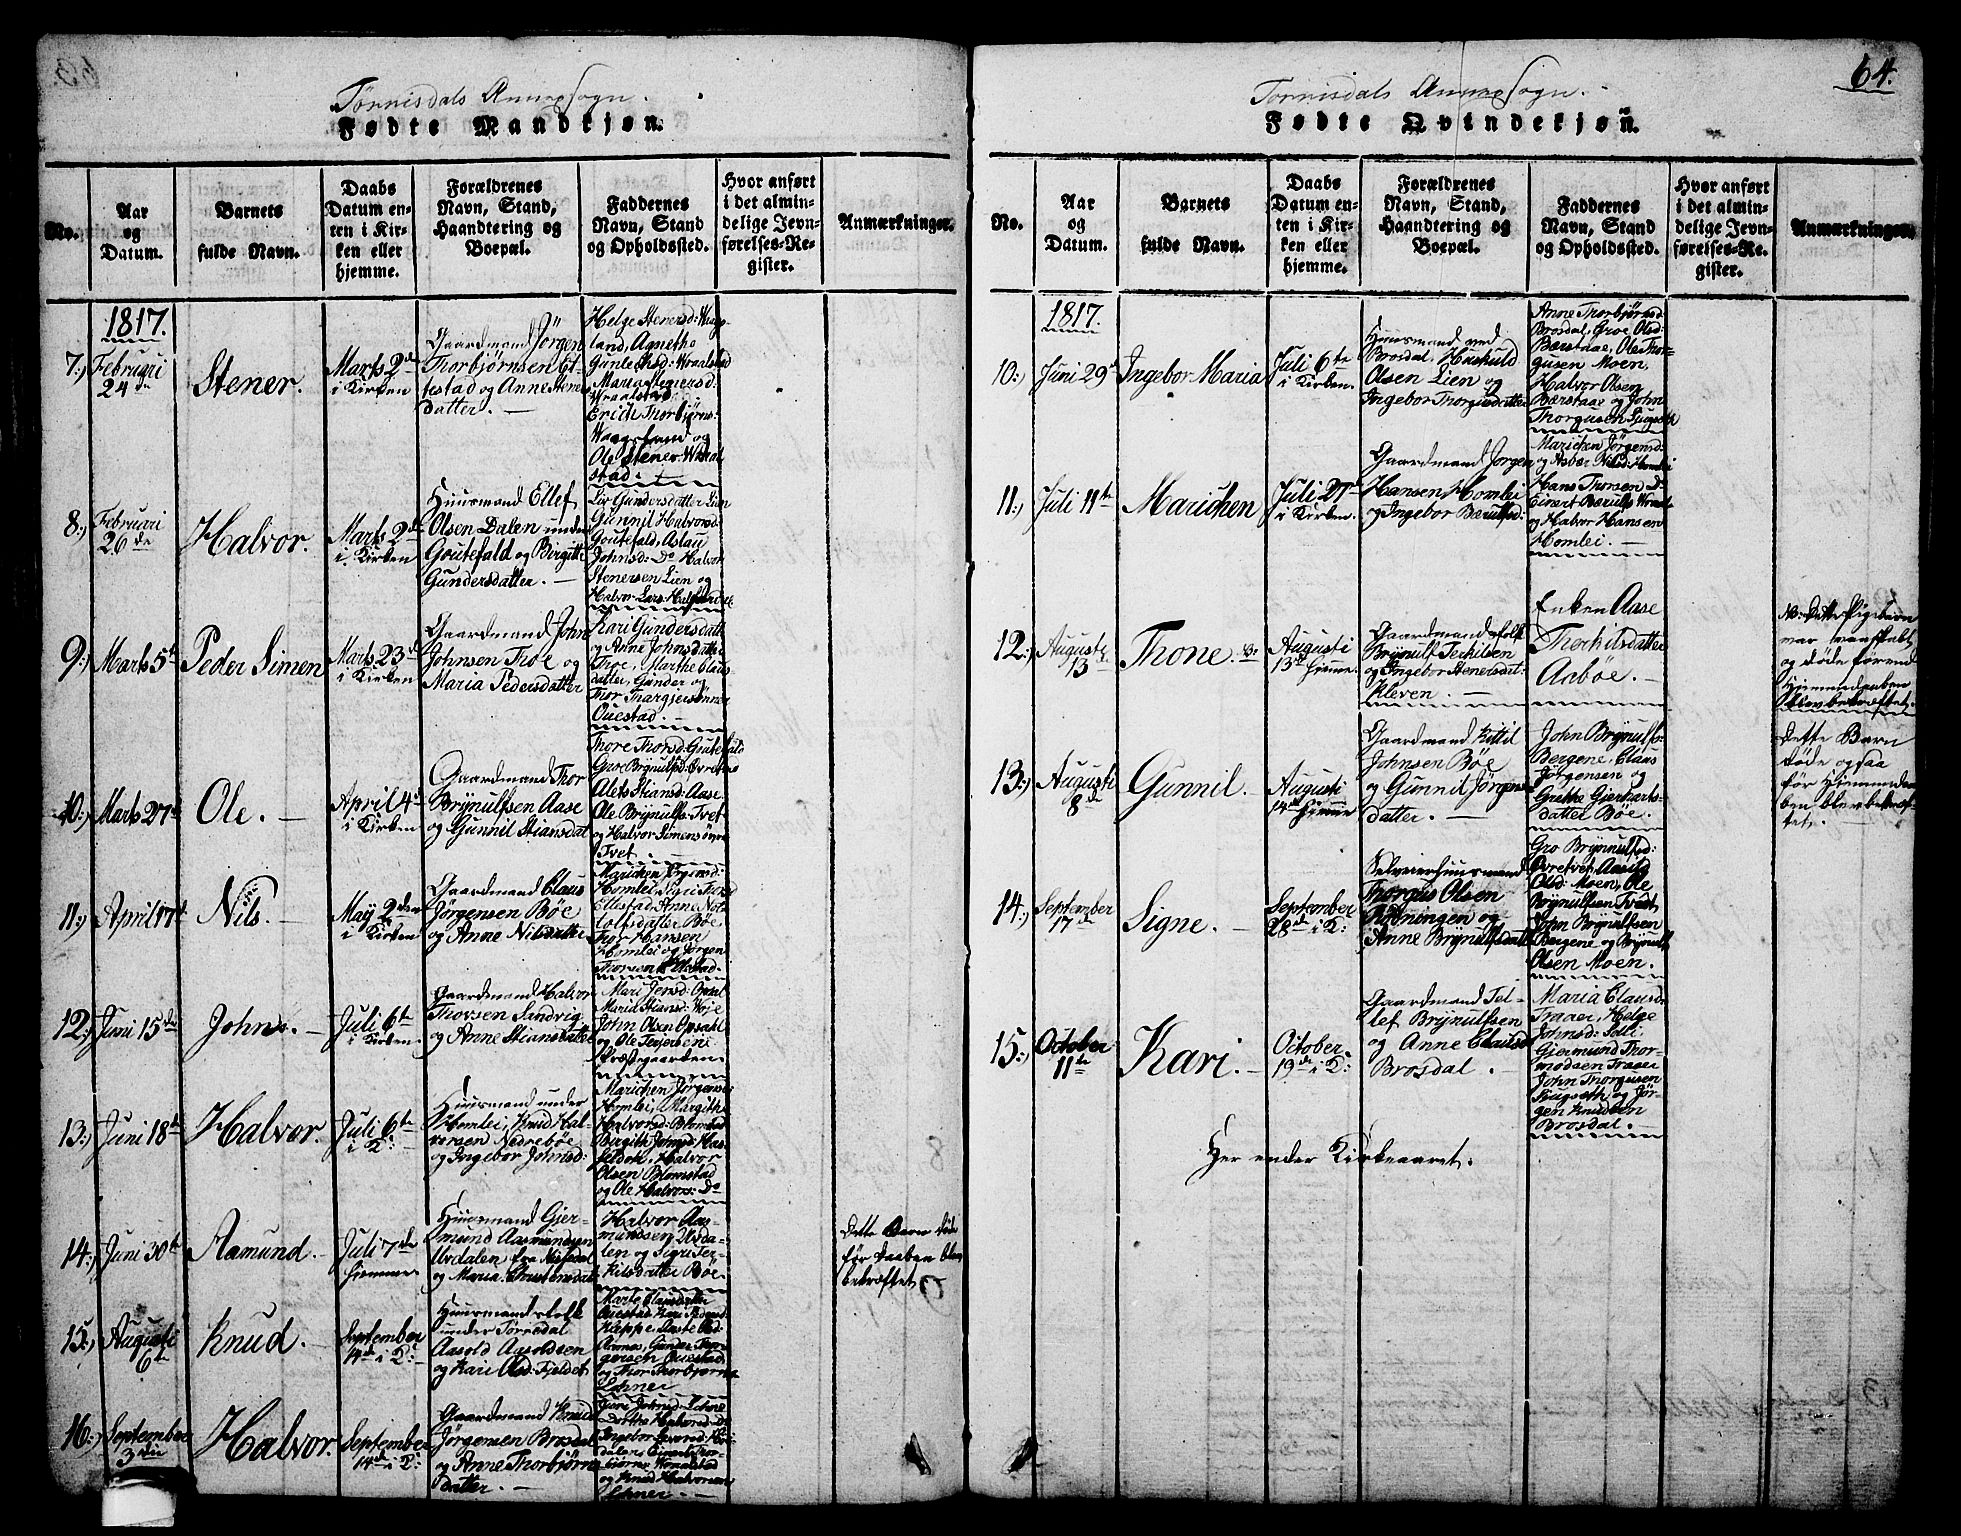 Tørrisdals Annexsogn.
Fødte Mandkjøn.
No.
Aar
og
Datum.
Barnets
fulde Navn.
Daabs
Datum en-
ten i Kir-
ken eller
hjemme.
Forældrenes
Navn, Stand,
Haandtering og
Boepæl.
Faddernes
Navn, Stand
og Opholdssted.
Hvor anført
i det almin-
delige Jevn-
førelses-Re-
gister.
Anmærkninger.
1817.
7:)
Februari
24de
Stener.
Marts 2de
i Kirken
Gaardmand Jörgen
Thorbjørnsen El-
testad og Anne Steners
datter. —
Helge Stenersd: Vraa-
land, Agnethe
Gunleiksd: Vraalstad
Maria Stenersd:
Vraalstad,
Erich Thorbjørns:
Waagsland og
Ole Stener: Wraal
stad. —
8:)
Februari
26de
Halvor.
Marts 2de
i Kirken
Huusmand Ellef
Olsen Dalen under
Goutefald og Birgitte
Gundersdatter. —
Liv Gundersdatter Lien
Gunnil Halvorsd:
Goutefald, Aslau
Johnsd: Do Halvor
Stenersen Lien og
Halvor Lars:
9:)
Marts 5te
Peder Simen
Marts 23de
i Kirken
Gaardmand John
Johnsen Troe og
Maria Pedersdatter
Kari Gundersdatter
og Anne Johnsdatter
Troe, Marthe Claus
datter, Gunder og
Thor Thargiersönner
Ouestad. —
10:)
Marts 27de
Ole. —
April 4de
i Kirken
Gaardmand Thor
Brynulfsen Aase
og Gunnil Stiansdat
Thore Thorsd: Goutefald
Groe Brynulfsd: Ovretvet
Alets Stiansd: Aase
Ole Brynulfs: Tvet
og Halvor Simensønn
Tvet. —
11:)
April 17de
Nils. —
May 2den
i Kirken
Gaardmand Claus
Jørgensen Bøe
og Anne Nilsdatter
Marichen Jørgensd:
Homlei, Siri Thorsd
Ellestad, Anne Not-
tolfsdatter Bøe
Thor Hansen
Homlei og Jørgen
Thorsen Ellestad. —
12:)
Juni 15de
John. —
Juli 6te
i Kirken
Gaardmand Halvor
Thorsen Sandvig
og Anne Stiansdatter
Mari Jensd: Opsal
Maria Stiansd: Woje
John Olsen Opsahl
og Ole Terjersen
Præstgaarden.
13:)
Juni 18de
Halvor.
Juli 6te
i D:
Huusmand under
Homlei, Knud Hal-
vorsen Nedrebøe
og Ingebor Johnsd:
Marichen Jørgensd
Homlei, Margith
Halvorsd: Blomstad
Bergith Johnsd: Has-
seldah, Halvor
Olsen Blomstad
og Ole Halvors: Do
14:)
Juni 30te
Aamund. —
Juli 7de
hjemme
Huusmand Gier-
mund Aasmundsen
Urdalen, fra Nissedal
og Maria Christensdat
Halvor Aas-
mundsen Urda-
len og Sigri Ter-
kilsdatter Bøe.
Dette Barn døde
før Daaben blev
bekræftet.
15:)
Augusti
6te
Knud. —
September
14de i D:
Huusmandsfolk
under Tørrisdal
Aasold Aasoldsen
og Kari Olsd: Fjeldet
Marte Clausdatter
Ouestad, Kari Pedersd
Kleppe, Aaste Ols:
Aamnes, Gunder Thor-
gersen Ouestad
og Thor Thorbjørns
Lohner
16:)
September
3die
Halvor.
September
14de i D:
Gaardmand Knud
Jørgensen Brosdal
og Anne Thorbjørns
datter. —
Guri Johnsd: Lohne
Dorthe Halvorsd: Do
og Knud Halvorsen
Lohner. —
64.
Torrisdals Annexsogn.
Fødte Qvindekjøn.
No.
Aar
og
Datum.
Barnets
fulde Navn.
Daabs
Datum en-
ten i Kir-
ken eller
hjemme.
Forældrenes
Navn, Stand,
Haandtering og
Boepæl.
Faddernes
Navn, Stand
og Opholdssted.
Hvor anført
i det almin-
delige Jevn-
førelses-Re-
gister.
Anmærkninger.
1817.
10:)
Juni 29de
Ingebor Maria
Juli 6te
i Kirken.
Huusmand ved
Brosdal, Huskuld
Olsen Lien og
Ingebor Thorgusdatter
Anne Thorbjørnsd
Brosdal, Groe Olsd:
Bærstaae, Ole Thor-
gusen Moen,
Halvor Olsen
Bærstaae og John
Thorgusen Fuugseth
11:)
Juli 11te
Marichen
Juli 27de
i Kirken.
Gaardmand Jørgen
Hansen Homlei
og Ingebor Bærulfsd:
Marichen Jørgensd:
og Asbør Nilsd: Homlei
Hans Thorsen Do
Eivert Bærulfs Vraal
og Halvor Hansen
Homlei. —
12:)
Augusti
13de
Thone.
Augusti
13de Hjemme.
Gaardmandsfolk
Brynulf Terkilsen
og Ingebor Stenersdat:
Kleven. —
Enken Aase
Therkilsdatter
Aabøe. —
NB: Dette Pigebarn
var vanskabt,
og døde førend
Hjemmedaaben
blev bekræftet.
13:)
Augusti
8de
Gunnil.
Augusti
14de Hjemme
Gaardmand Kittil
Johnsen Bøe
og Gunnil Jørgens
datter. —
John Brynulfs:
Bergene, Claus
Jørgensen og
Grethe Gierharts-
datter Bøe.
Dette Barn
døde ogsaa
før Hjemmedaa-
ben blev bekræf-
tet. —
14:)
September
17de
Signe. —
September
28de i D:
Selveierhuusmand
Thorgus Olsen
Rødningen og
Anne Brynulfsdatter
Gro Brynnulfsd:
Ovretvet, Aaslög
Olsd: Moen, Ole
Brynulfsen Tvedt,
John Brynulfsen
Bergene og Brynulf
Olsen Moen.
15:)
October
11te
Kari. —
October
19de i D:
Gaardmand Tel-
lef Brynulfsen
og Anne Clausd
Brosdal. —
Maria Clausd:
Traaer, Helge
Johnsd: Solli
Gjermund Thor-
modsen Traaer
John Thorgusen
Fuugseth og Jør-
gen Knudsen
Brosdal. —
Her ender Kirkeaaret.